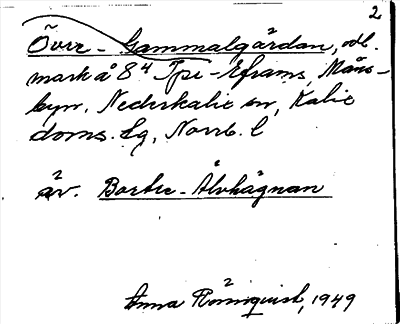 2
Övre-Gammalgärdan, odl.
mark å 8⁴ Tpi-Eframs, Måns-
byn, Nederkalix sn, Kalix
doms. lg, Norrb. l
äv. Bortre-Älvhägnan
Anna Rönnquist, 1949